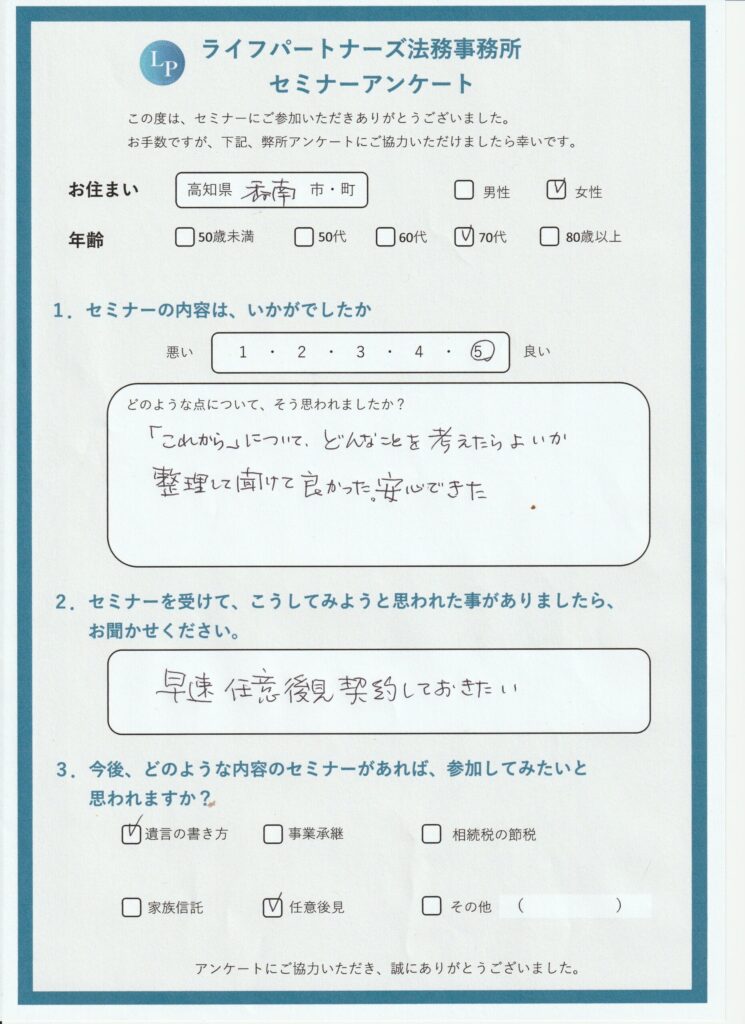 LP
ライフパートナーズ法務事務所
セミナーアンケート
この度は、セミナーにご参加いただきありがとうございました。
お手数ですが、下記、弊所アンケートにご協力いただけましたら幸いです。
お住まい 高知県 香南 市・町 □ 男性 ☑ 女性
年齢 □50歳未満 □50代 □60代 ☑70代 □80歳以上
1．セミナーの内容は、いかがでしたか
悪い 1 ・ 2 ・ 3 ・ 4 ・ ⑤ 良い
どのような点について、そう思われましたか？
「これから」について、どんなことを考えたらよいか
整理して聞けて良かった。安心できた
2．セミナーを受けて、こうしてみようと思われた事がありましたら、
お聞かせください。
早速任意後見契約しておきたい
3．今後、どのような内容のセミナーがあれば、参加してみたいと
思われますか？
☑遺言の書き方 □事業承継 □ 相続税の節税
□家族信託 ☑任意後見 □ その他 （ ）
アンケートにご協力いただき、誠にありがとうございました。